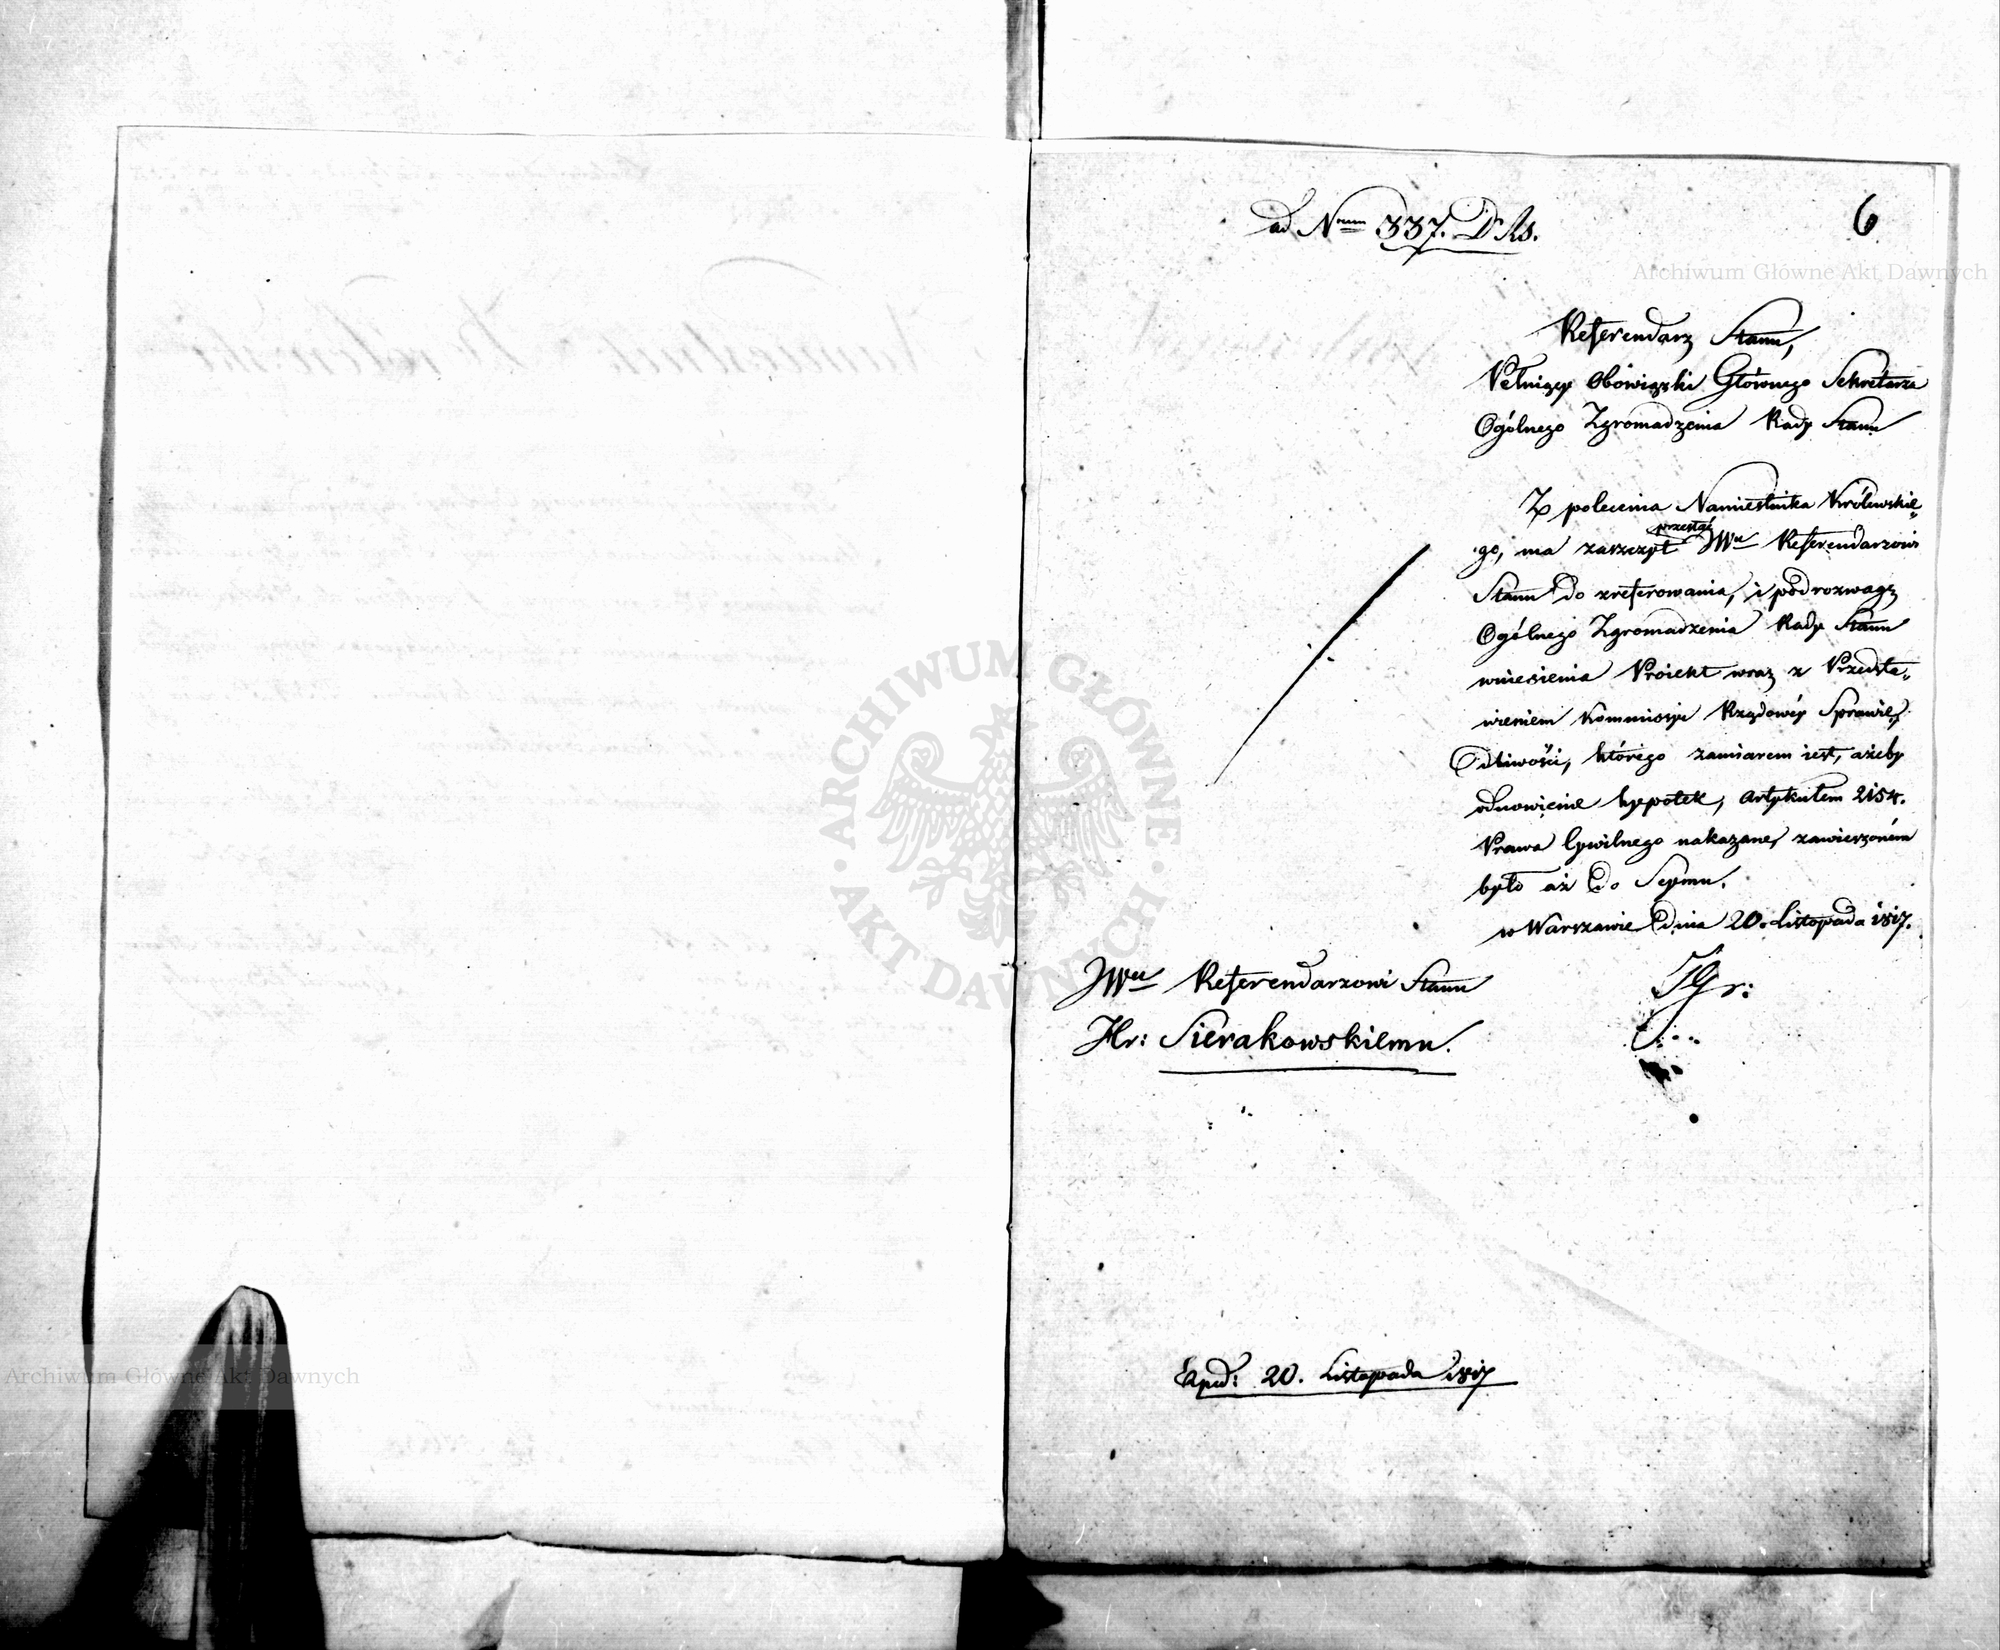 ad Nrum 337. D Rs.
6
Archiwum Główne Akt Dawnych
Referendarz Stanu,
Pełniący Obowiązki Głównego Sekretarza
Ogólnego Zgromadzenia Rady Stanu
Z polecenia Namiestnika Królewskie„
przesłać
go, ma zaszczyt JWu Referendarzowi
Stanu do zreferowania, i pod rozwagę
Ogólnego Zgromadzenia Rady Stanu
wniesienia Proiekt wraz z Przedsta„
wieniem Kommissyi Rządowéy Sprawie„
dliwości, którego zamiarem iest, ażeby
odnowienie hypotek, Artykułem 2154.
Prawa Cywilnego nakazane, zawieszoném
było aż do Seymu.
w Warszawie dnia 20. Listopada 1817.
JWu Referendarzowi Stanu
Hr: Sierakowskiemu.
Expd: 20. Listopada 1817
ARCHIWUM GŁÓWNE · AKT DAWNYCH ·
Archiwum Główne Akt Dawnych